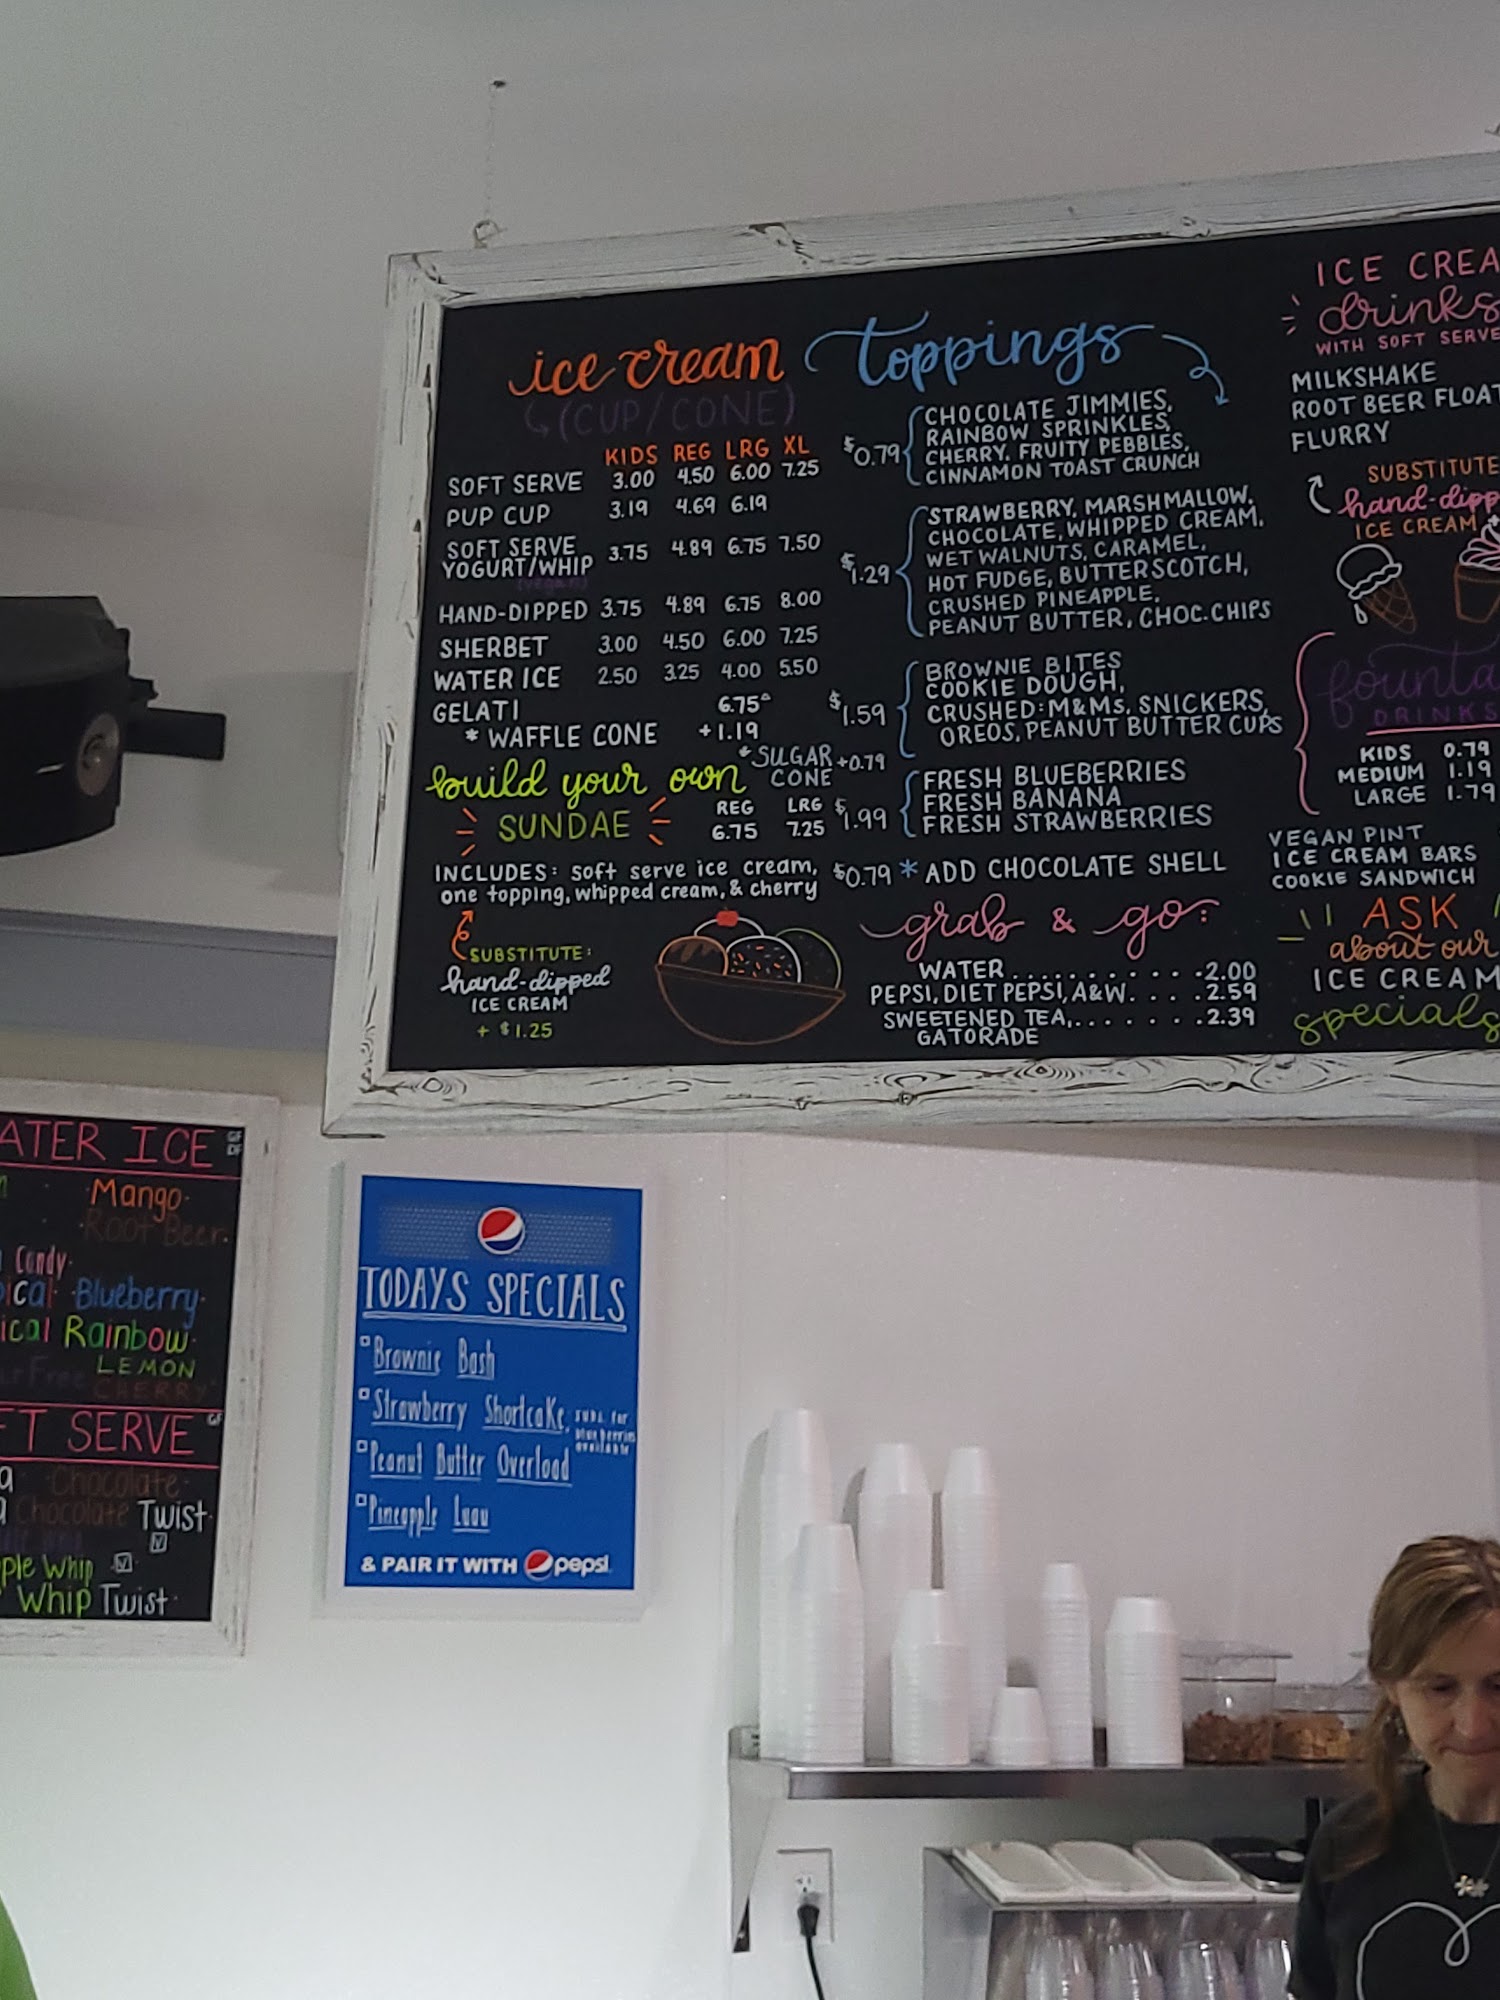 ice cream
(CUP/CONE)
KIDS REG LRG XL
SOFT SERVE 3.00 4.50 6.00 7.25
PUP CUP 3.19 4.69 6.19
SOFT SERVE
YOGURT/WHIP 3.75 4.89 6.75 7.50
(vegan)
HAND-DIPPED 3.75 4.89 6.75 8.00
SHERBET 3.00 4.50 6.00 7.25
WATER ICE 2.50 3.25 4.00 5.50
GELATI 6.75
* WAFFLE CONE +1.19
* SUGAR CONE +0.79
build your own
SUNDAE
REG LRG
6.75 7.25
INCLUDES: soft serve ice cream,
one topping, whipped cream, & cherry
SUBSTITUTE:
hand-dipped
ICE CREAM
+ $1.25
toppings
$0.79
CHOCOLATE JIMMIES,
RAINBOW SPRINKLES,
CHERRY, FRUITY PEBBLES,
CINNAMON TOAST CRUNCH
$1.29
STRAWBERRY, MARSHMALLOW,
CHOCOLATE, WHIPPED CREAM,
WET WALNUTS, CARAMEL,
HOT FUDGE, BUTTERSCOTCH,
CRUSHED PINEAPPLE,
PEANUT BUTTER, CHOC.CHIPS
$1.59
BROWNIE BITES
COOKIE DOUGH,
CRUSHED: M&Ms, SNICKERS,
OREOS, PEANUT BUTTER CUPS
$1.99
FRESH BLUEBERRIES
FRESH BANANA
FRESH STRAWBERRIES
$0.79 * ADD CHOCOLATE SHELL
grab & go:
WATER...........2.00
PEPSI, DIET PEPSI, A&W....2.59
SWEETENED TEA,.......2.39
GATORADE
ICE CREA
drinks
WITH SOFT SERVE
MILKSHAKE
ROOT BEER FLOAT
FLURRY
SUBSTITUTE
hand-dipp
ICE CREAM
founta
DRINKS
KIDS 0.79
MEDIUM 1.19
LARGE 1.79
VEGAN PINT
ICE CREAM BARS
COOKIE SANDWICH
ASK
about our
ICE CREAM
specials
ATER ICE GF DF
Mango
Root Beer
Candy
ical Blueberry
ical Rainbow
Free LEMON
CHERRY
FT SERVE GF
a Chocolate
a Chocolate Twist
V
ple Whip V
Whip Twist
TODAYS SPECIALS
Brownie Bash
Strawberry Shortcake, subs. for
blueberries
available
Peanut Butter Overload
Pineapple Luau
& PAIR IT WITH pepsi